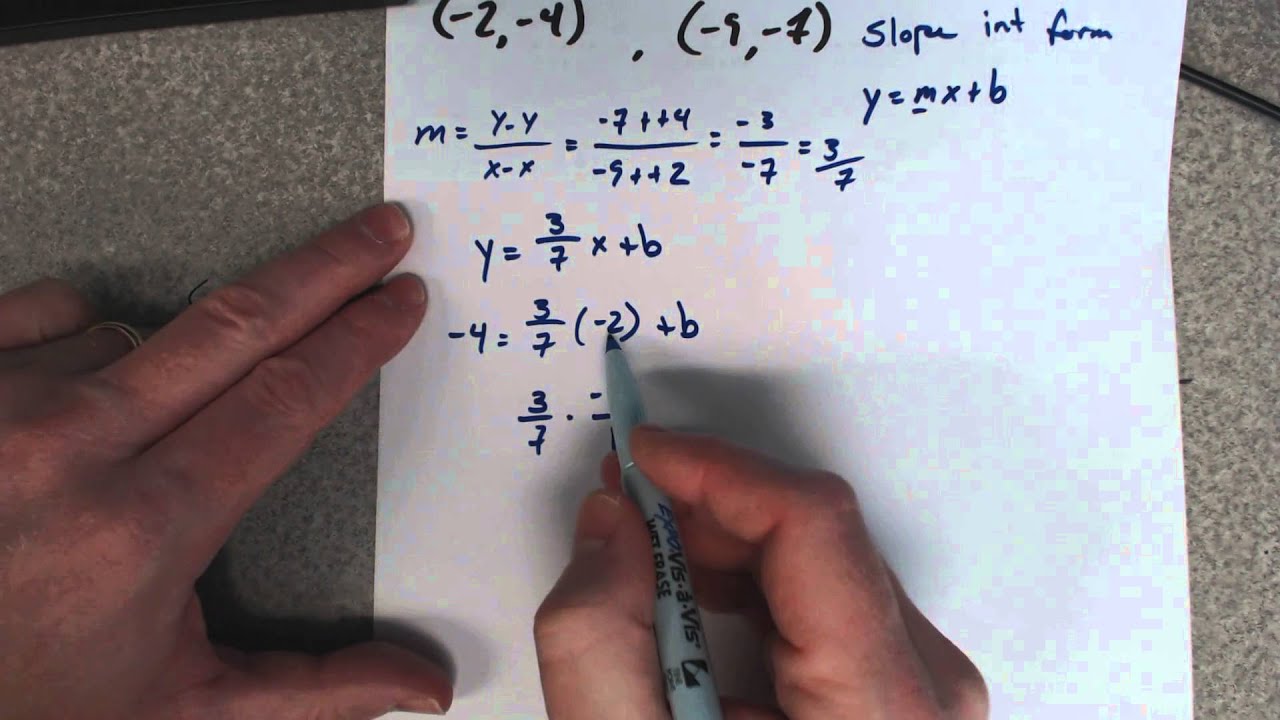 (-2,-4) , (-9,-7) Slope int form
y = mx+b
m = y-y / x-x = -7++4 / -9++2 = -3 / -7 = 3/7
y = 3/7 x + b
-4 = 3/7 (-2) + b
3/7 · -
EXPO VIS·à·VIS
WET ERASE